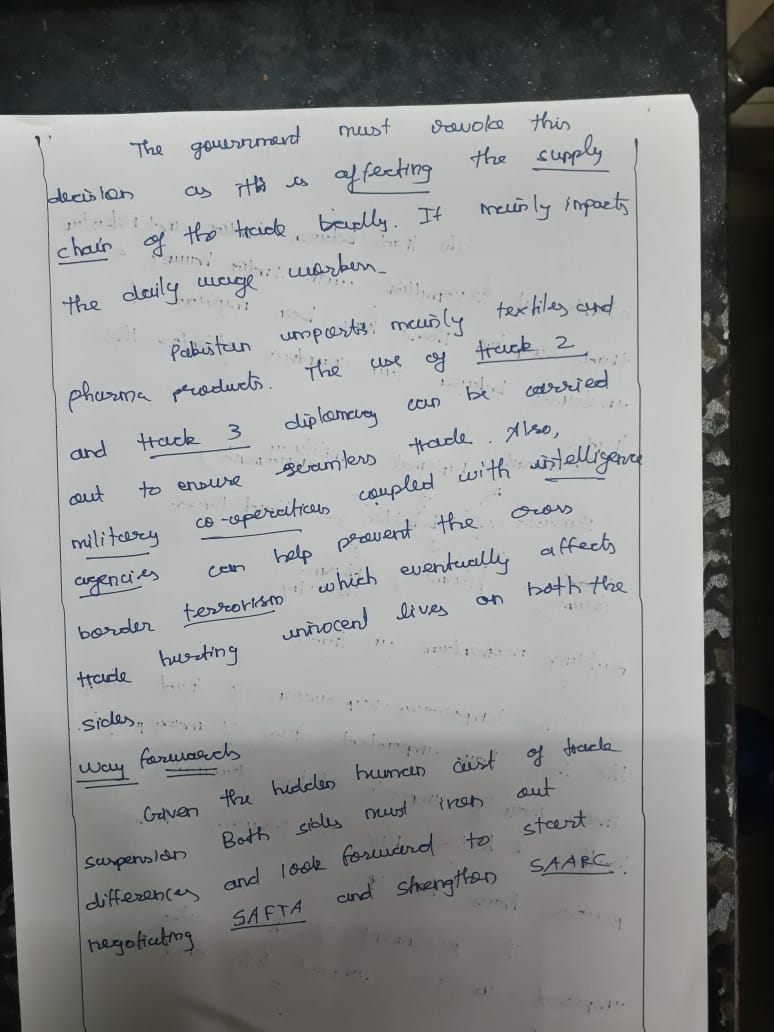 The government must revoke this
decision as this is affecting the supply
chain of the trade badly. It mainly impacts
the daily wage workers.
Pakistan imports mainly textiles and
pharma products. The use of track 2
and track 3 diplomacy can be carried
out to ensure seamless trade. Also,
military co-operation coupled with intelligence
agencies can help prevent the cross
border terrorism which eventually affects
trade hurting innocent lives on both the
sides.
Way forwards
Given the hidden human cost of trade
suspension Both sides must iron out
differences and look forward to start
negotiating SAFTA and strengthen SAARC.